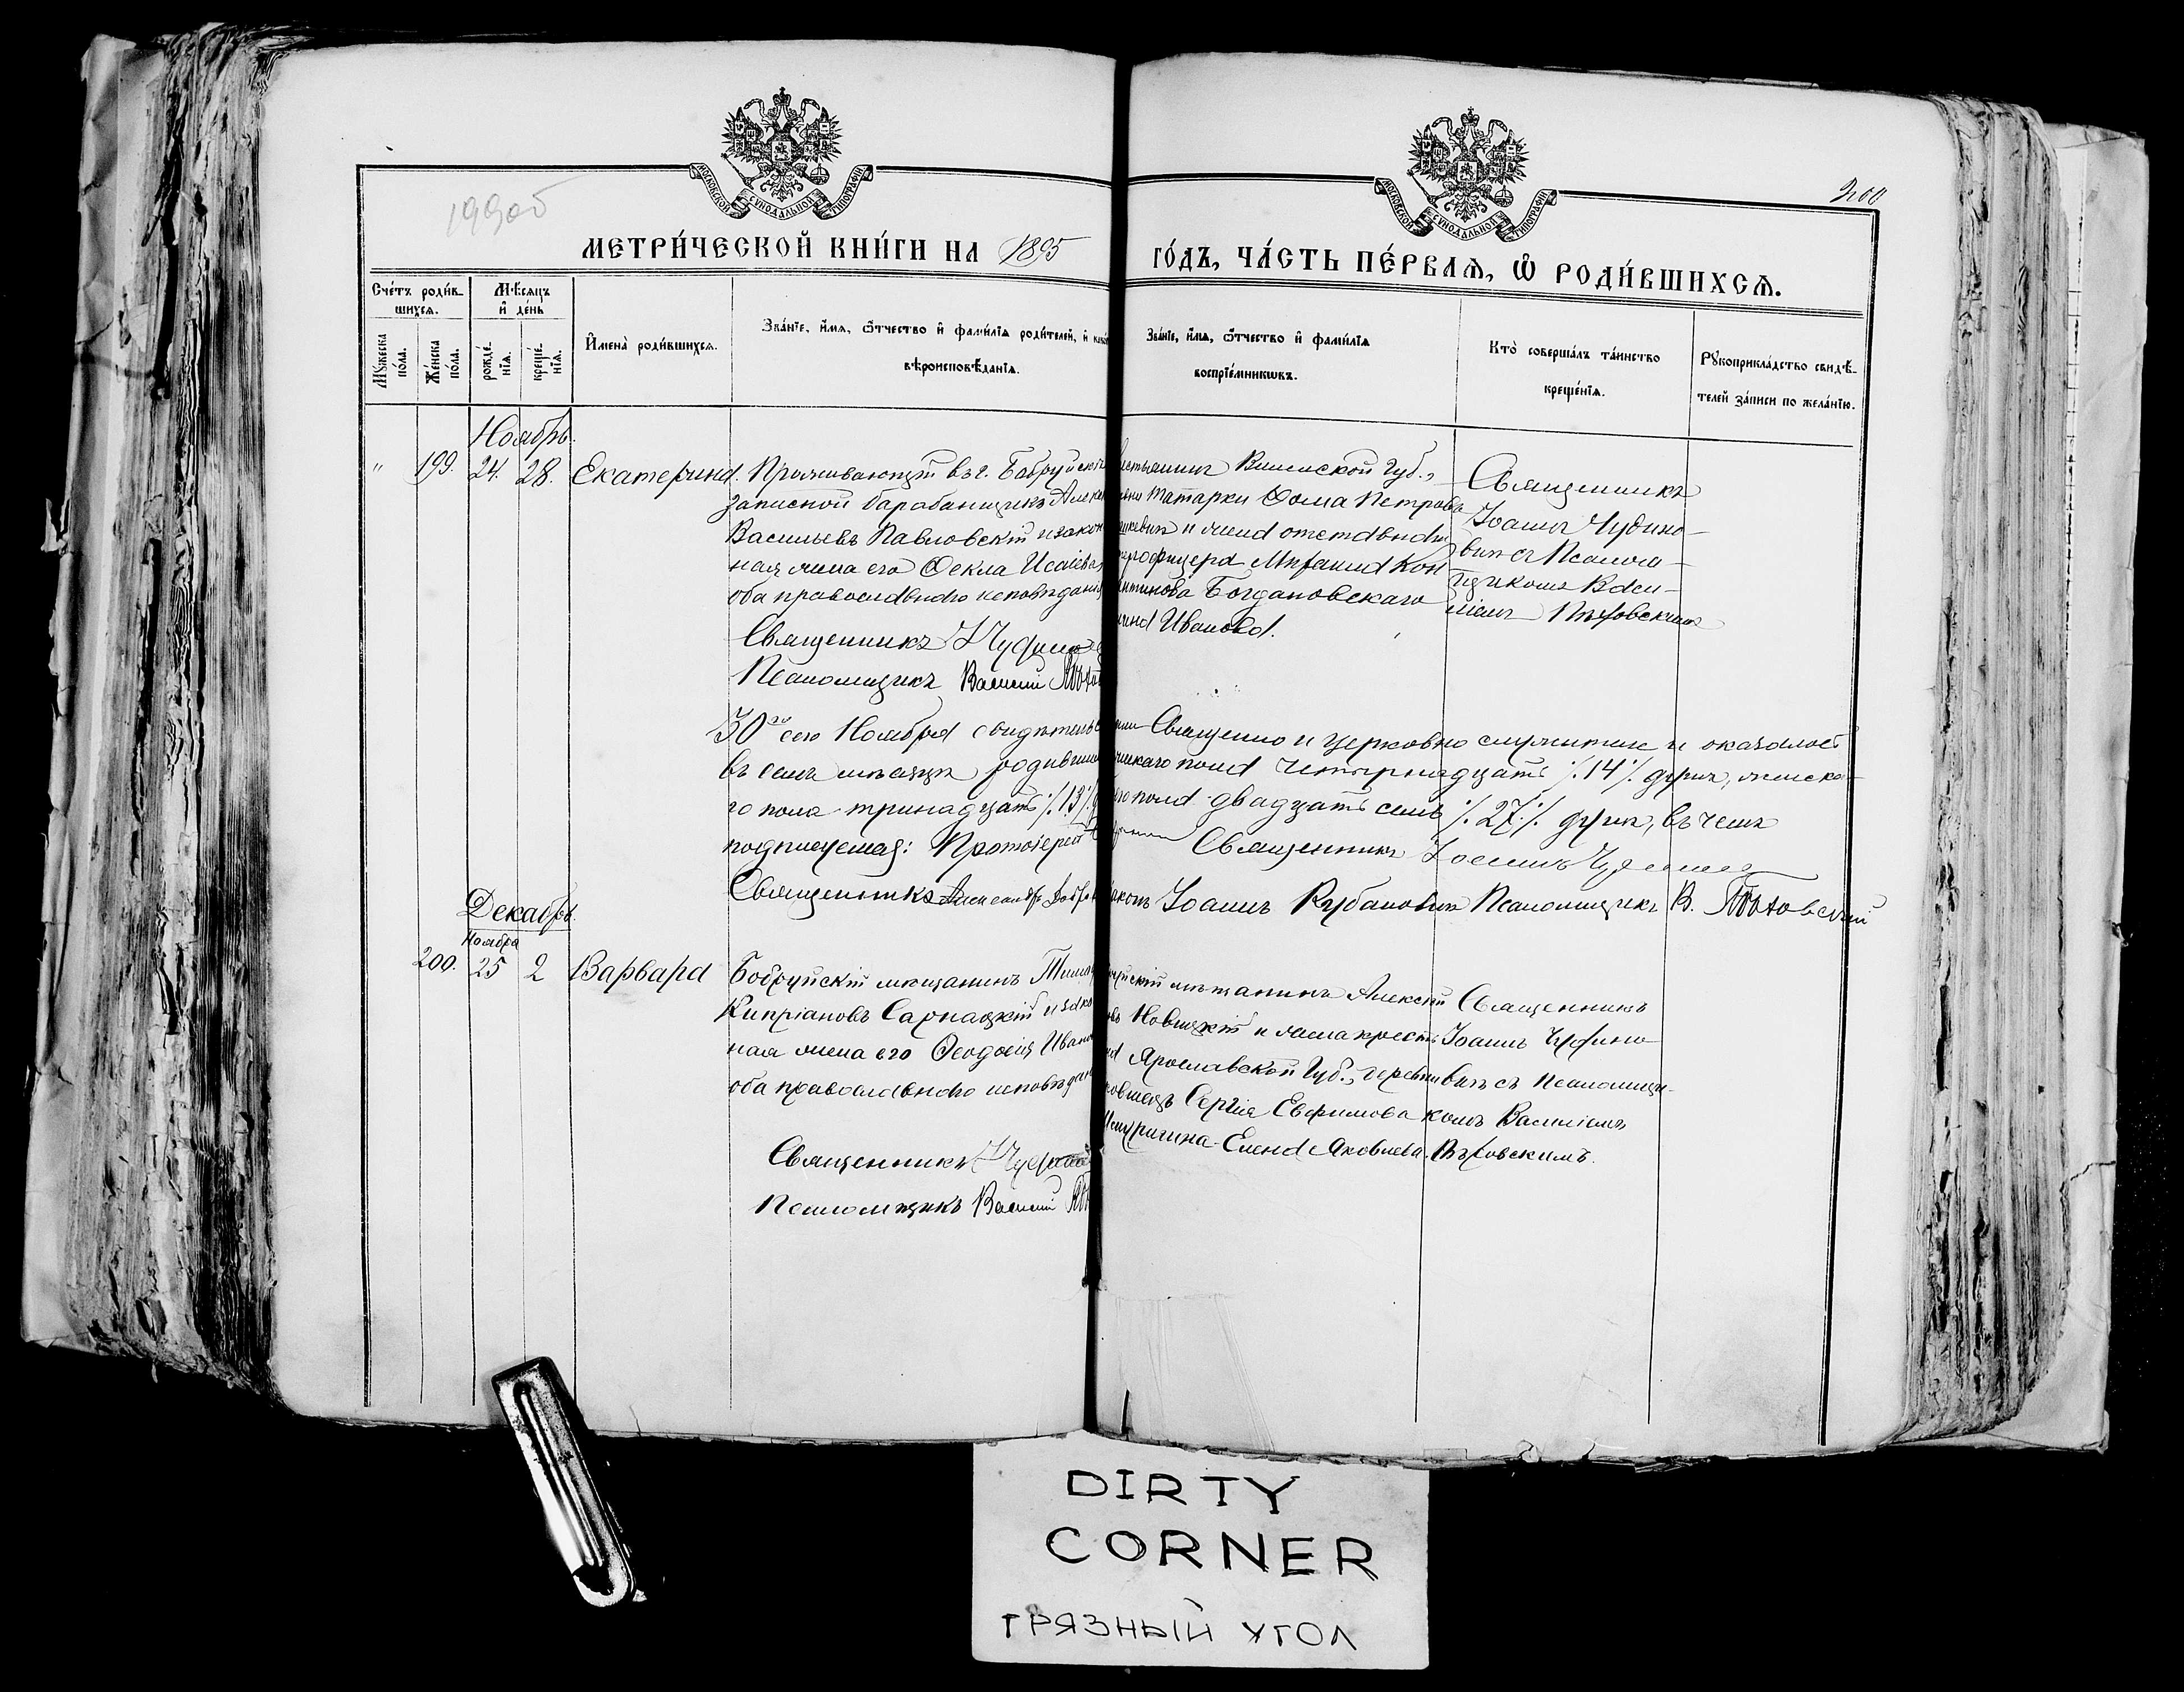 199об
200
МОСКОВСКОЙ СѴНОДАЛЬНОЙ ТИПОГРАФІИ
МОСКОВСКОЙ СѴНОДАЛЬНОЙ ТИПОГРАФІИ
МЕТРИ́ЧЕСКОЙ КНИ́ГИ НА 1895
ГО́ДЪ, ЧА́СТЬ ПЕ́РВАѦ, Ѿ РОДИ́ВШИХСѦ.
Сче́тъ роди́в-
шихсѧ.
Мꙋ́жеска по́ла.
Же́нска по́ла.
Мѣ́сяцъ
и де́нь
рожде́-
нїѧ.
креще́-
нїѧ.
Имена̀ роди́вшихсѧ.
Зва́нїе, и́мѧ, ѻ́тчество и фами́лїѧ роди́телей, и
вѣроисповѣ́данїѧ.
Зва́нїе, и́мѧ, ѻ́тчество и фами́лїѧ
воспрїе́мникωвъ.
Кто̀ соверша́лъ та́инство
креще́нїѧ.
Рꙋкоприкла́дство свидѣ́-
телей за́писи по жела́нїю.
Ноябрь.
" 199. 24. 28. Екатерина.
Проживающій въ г. Бобруйскѣ
запасной барабанщикъ
Васильевъ Павловскій и закон
ная жена его Ѳекла Исаіева,
оба православнаго исповѣданія
Священникъ І Чудино
Псаломщикъ Василій
Виленской губ.,
Татарки Ѳома Петровъ
и жена отставнаго
Михаила Кон
Богдановскаго
Иванова.
Священникъ
Іоаннъ Чудино-
вичъ съ Псалом-
щикомъ Васи-
ліемъ Пѣховскимъ
30го сего Ноября свидѣтельс
Священно и церковно служители и оказалось
въ семъ мѣсяцѣ родивши
пола четырнадцать ·/.14·/. душъ, женска-
го пола тринадцать ·/.13·/.
пола двадцать семь ·/.27·/. душъ, въ чемъ
подписуемся: Протоіерей
Священникъ Іоаннъ
Священникъ
Іоаннъ Кубановичъ Псаломщикъ В. Пѣховскій
Декабрь.
Ноября
200. 25 2 Варвара
Бобруйскій мѣщанинъ
Кипріановъ Сарнацкій и зако
ная жена его Ѳеодосія Ивано
оба православнаго исповѣдан
Священникъ І Чудино
Псаломщикъ Василій
мѣщанинъ Алексѣй
Новицкій и жена крест
Ярославской губ.,
Сергія Евфимова
Елена Яковлева.
Священникъ
Іоаннъ Чудино
вичъ съ Псаломщи-
комъ Василіемъ
Пѣховскимъ.
DIRTY
CORNER
ГРЯЗНЫЙ УГОЛ